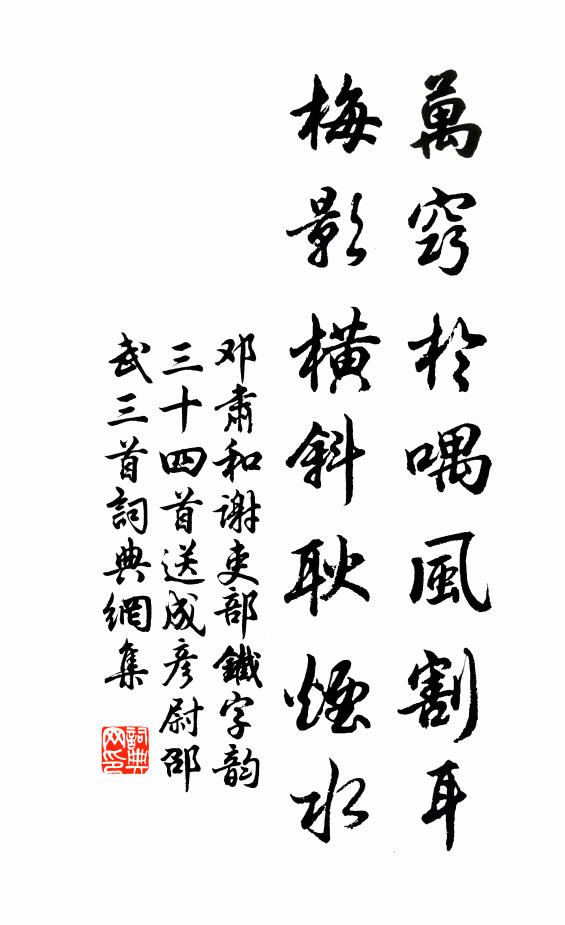 萬竅於喁風割耳
梅影橫斜耿煙水
邓肅和谢吏部鐵字韵
三十四首送成彦尉邵
武三首詞典網集
詞典
网印